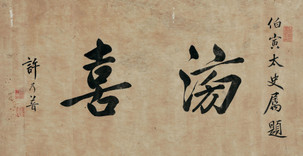 伯寅太史屬題
滂喜
許乃普